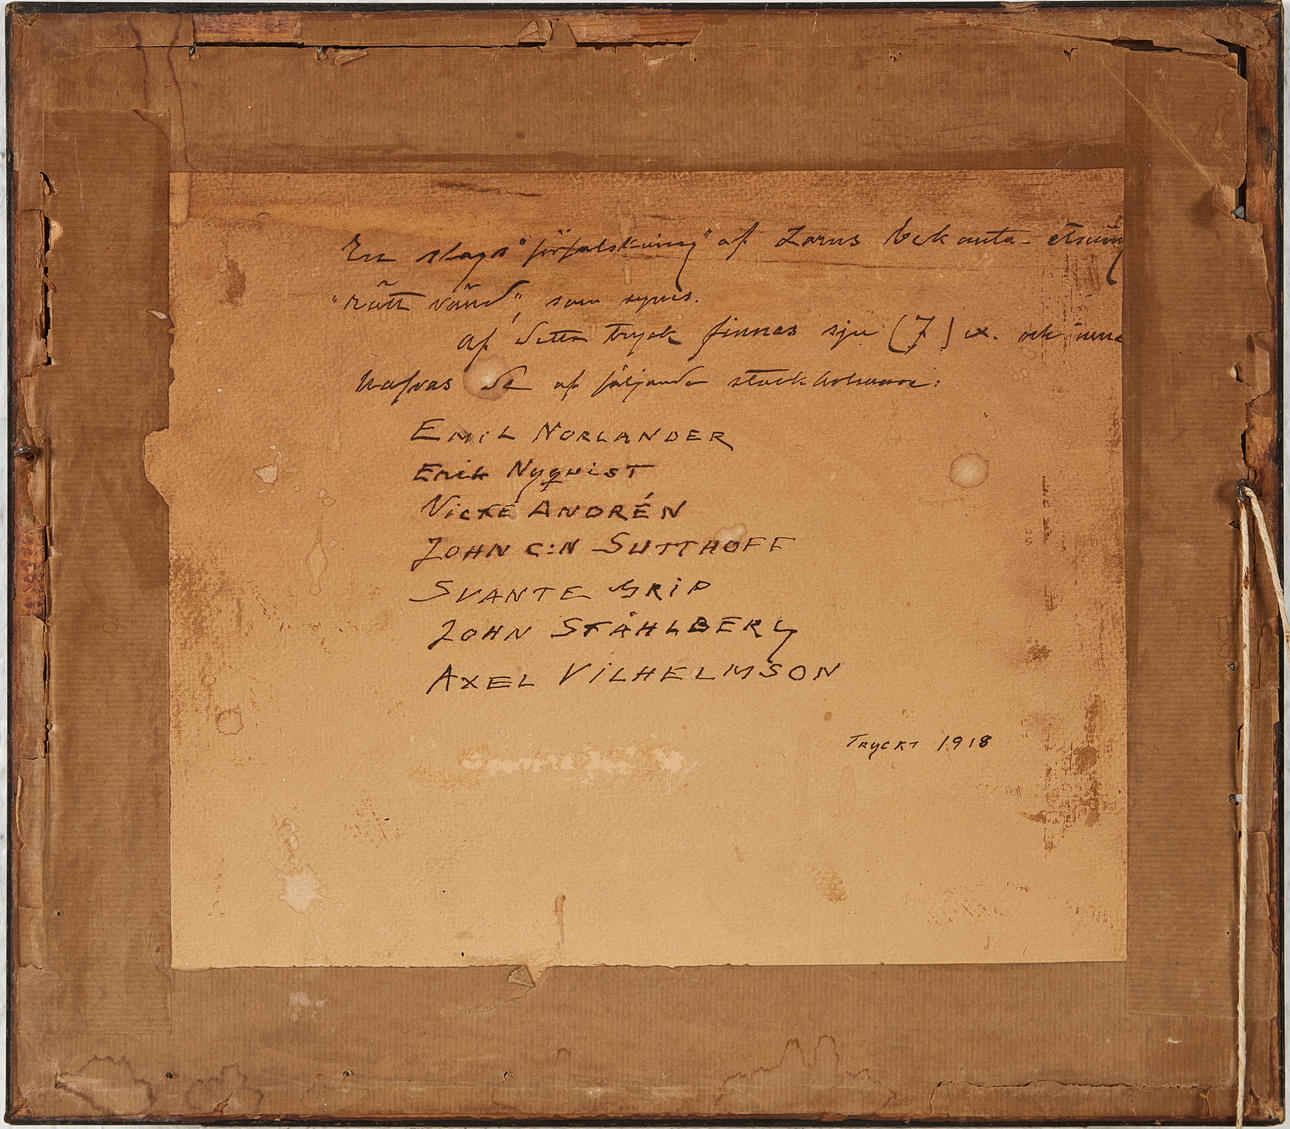 En slags "förfalskning" af Zorns bekanta etsning
"Rätt vänd", som synes.
af detta tryck finnes sju (7) ex. och inne
hafvas de af följande stockholmare:
EMIL NORLANDER
Erik Nyquist
VICKE ANDRÉN
JOHN C:N SUTTHOFF
SVANTE GRIP
JOHN STÅHLBERG
AXEL VILHELMSON
TRYCKT 1918